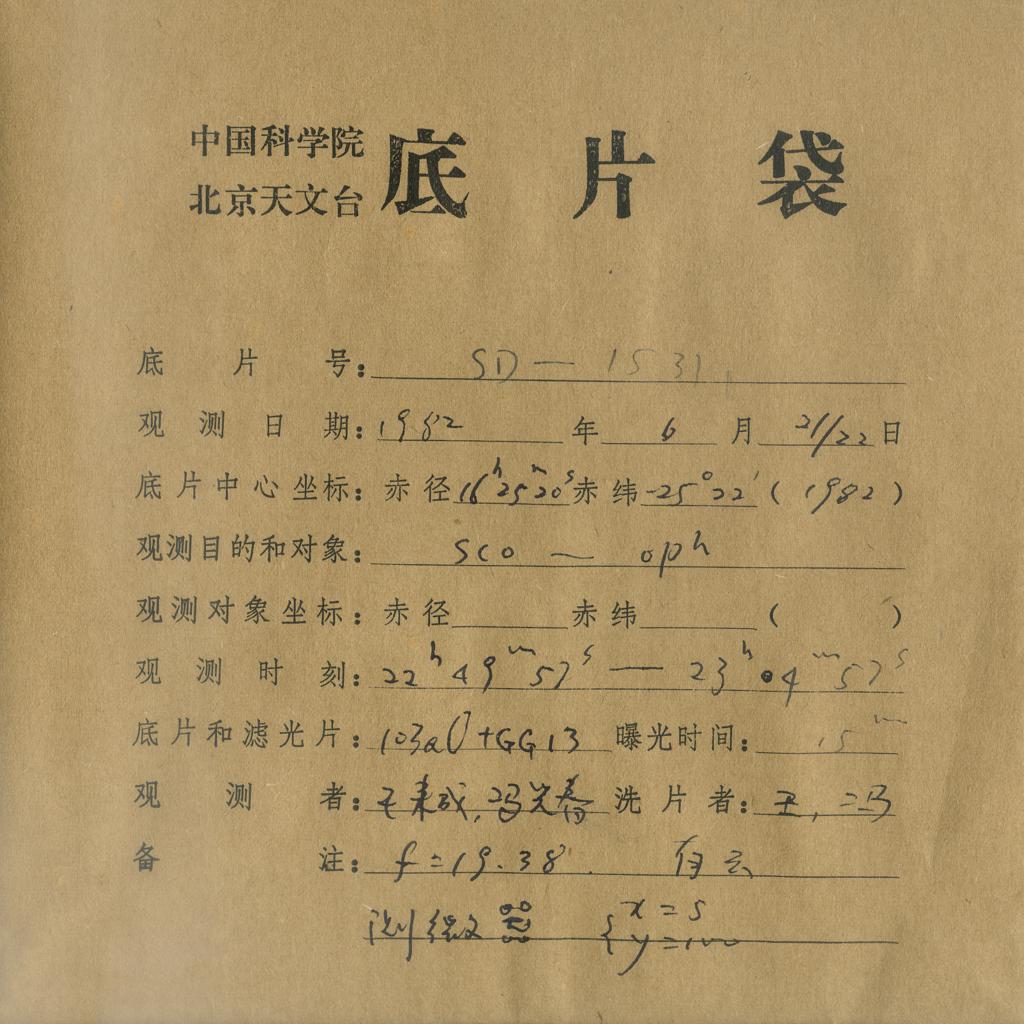 中国科学院
北京天文台
底片袋
底片号: SD — 1531
观测日期: 1982 年 6 月 21/22 日
底片中心坐标: 赤径 16h25m20s 赤纬 -25°22′ (1982)
观测目的和对象: Sco — oph
观测对象坐标: 赤径 赤纬 ( )
观测时刻: 22h49m57s — 23h04m57s
底片和滤光片: 103aO+GG13 曝光时间: 15m
观测者: 王来成, 冯 洗片者: 王, 冯
备注: f=19.38. 有云
测微器 { x=5
y=100